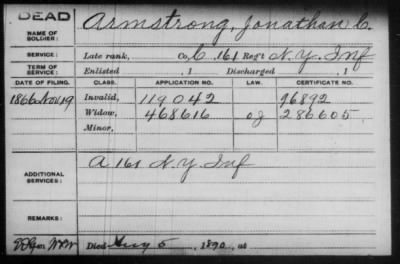 DEAD
NAME OF SOLDIER: Armstrong, Jonathan C.
SERVICE: Late rank, Co. C, 161 Reg't N.Y. Inf
TERM OF SERVICE: Enlisted , 1 Discharged , 1
DATE OF FILING. CLASS. APPLICATION NO. LAW. CERTIFICATE NO.
1866 Nov 19 Invalid, 119042 96892
Widow, 468616 286605
Minor,
ADDITIONAL SERVICES: A 161 N.Y. Inf
REMARKS:
Died Aug 5, 1890, at